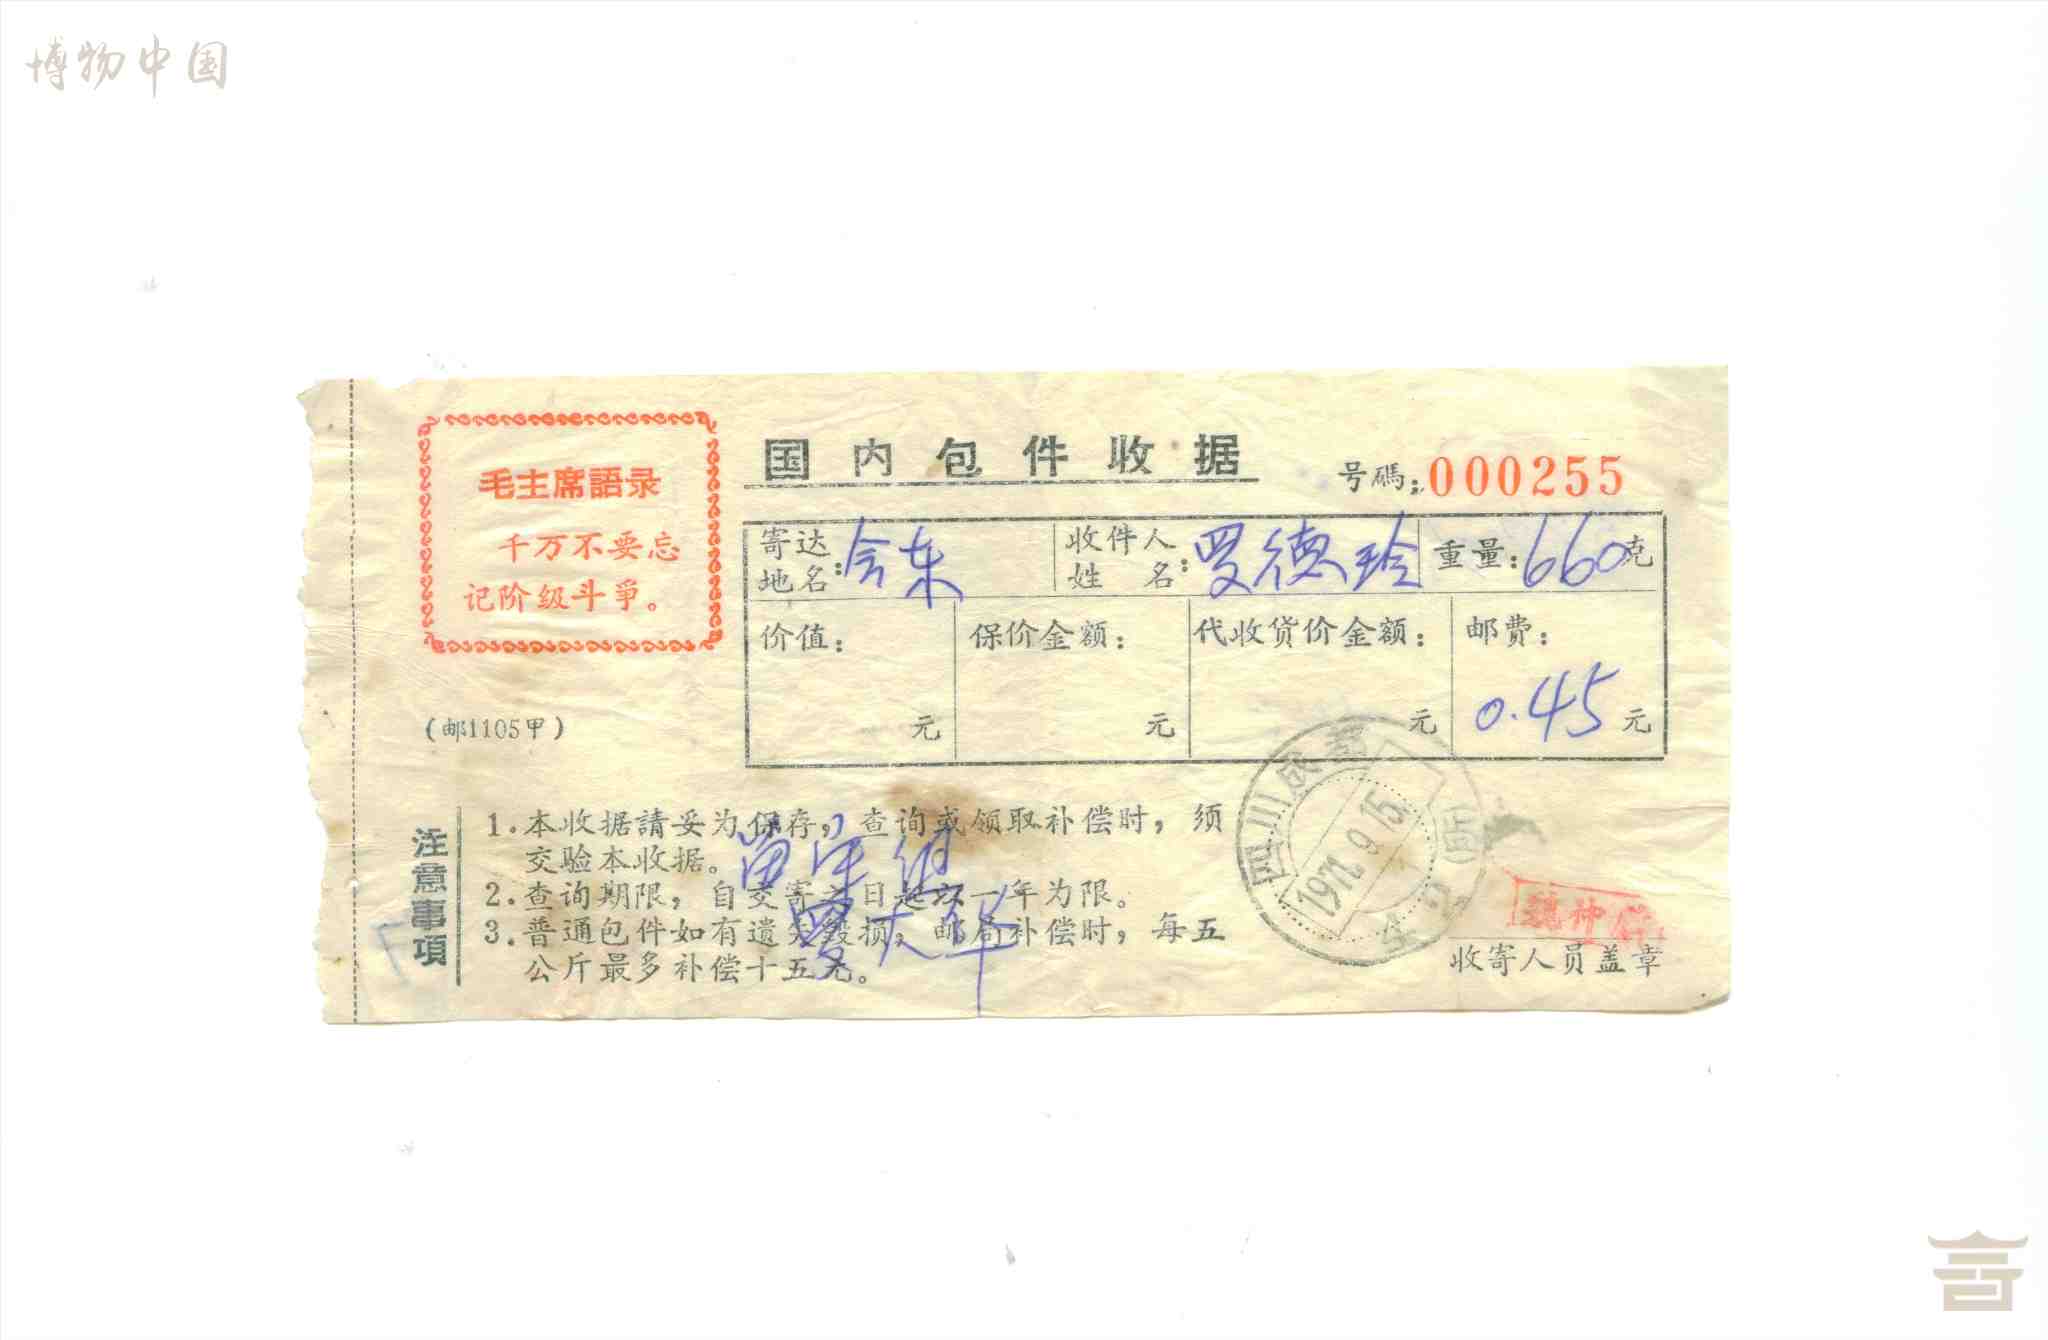 博物中国
毛主席語录
千万不要忘
记阶级斗爭。
(邮1105甲)
国内包件收据
号碼：000255
寄达地名：会东
收件人姓名：罗德玲
重量：660克
价值：
元
保价金额：
元
代收货价金额：
元
邮费：
0.45元
注意事項
1.本收据請妥为保存，查询或领取补偿时，须
交验本收据。
2.查询期限，自交寄之日起以一年为限。
3.普通包件如有遺失毁損，邮局补偿时，每五
公斤最多补偿十五元。
罗大华
四川成都
1971.9.15
收寄人员盖章